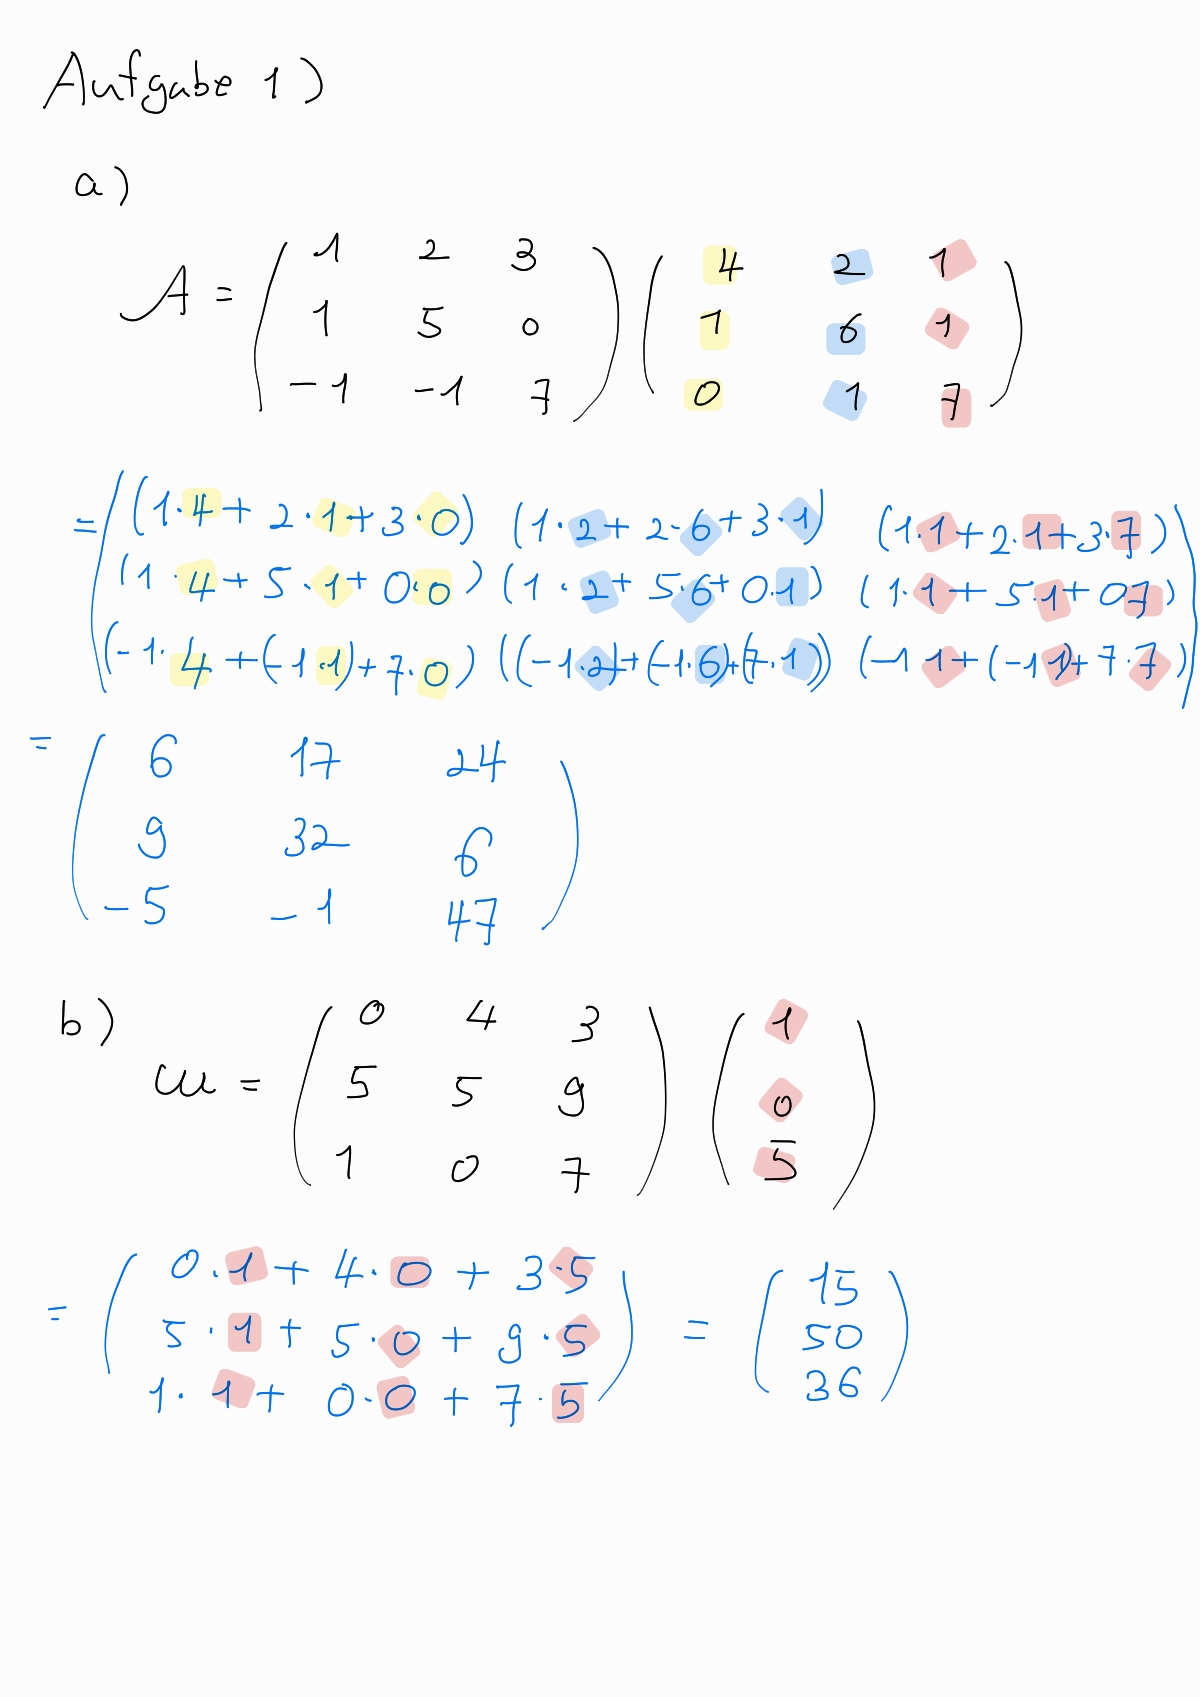 Aufgabe 1)
a)
A = ( 1 2 3 ) ( 4 2 1 )
1 5 0 1 6 1
-1 -1 7 0 1 7
= ( (1·4+ 2·1+3·0) (1·2+ 2·6+3·1) (1·1+2·1+3·7) )
(1·4+ 5·1+ 0·0) (1·2+ 5·6+0·1) (1·1+ 5·1+07)
(-1·4+(-1·1)+7·0) ((-1·2)+(-1·6)+(7·1)) (-1 1+(-1 1)+7·7)
= ( 6 17 24 )
9 32 6
-5 -1 47
b)
w = ( 0 4 3 ) ( 1 )
5 5 9 0
1 0 7 5
= ( 0·1+ 4·0 + 3·5 ) = ( 15 )
5·1+ 5·0+ 9·5 50
1·1+ 0·0 + 7·5 36